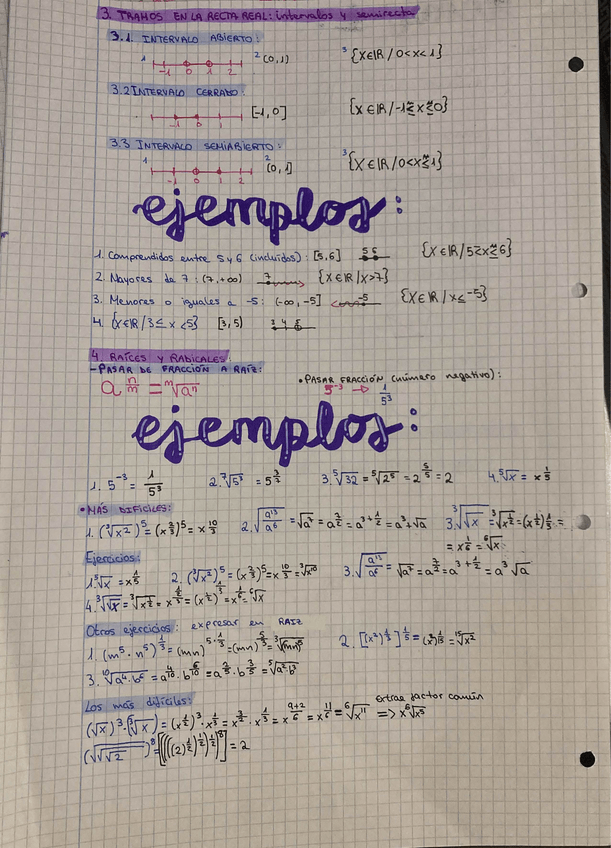 3. TRAMOS EN LA RECTA REAL: intervalos y semirecta
3.1. INTERVALO ABIERTO:
1 -1 0 1 2 ² (0,1) ³ {X∈ℝ / 0<x<1}
3.2 INTERVALO CERRADO:
-1 0 1 2 [-1,0] {X∈ℝ / -1≤x≤0}
3.3 INTERVALO SEMIABIERTO:
1 -1 0 1 2 ² (0,1] ³ {X∈ℝ / 0<x≤1}
ejemplos:
1. Comprendidos entre 5 y 6 (incluidos): [5,6] 5 6 {X∈ℝ / 5≤x≤6}
2. Mayores de 7: (7,+∞) 7 {X∈ℝ / x>7}
3. Menores o iguales a -5: (-∞,-5] -5 {X∈ℝ / x≤-5}
4. {X∈ℝ / 3≤x<5} [3,5) 3 4 5
4. RAÍCES Y RADICALES:
-PASAR DE FRACCIÓN A RAÍZ: •PASAR FRACCIÓN (número negativo):
a^(n/m) = ᵐ√aⁿ 5⁻³ → 1/5³
ejemplos:
1. 5⁻³ = 1/5³ 2. ⁷√5³ = 5^(3/7) 3. ⁵√32 = ⁵√2⁵ = 2^(5/5) = 2 4. ⁵√x = x^(1/5)
•MÁS DIFICILES:
1. (³√x²)⁵ = (x^(2/3))⁵ = x^(10/3) 2. √(a¹³/a⁶) = √a⁷ = a^(7/2) = a^(3+1/2) = a³+√a 3. ³√√x = ³√x^(1/2) = (x^(1/2))^(1/3) =
= x^(1/6) = ⁶√x
Ejercicios:
1. ⁵√x = x^(1/5) 2. (³√x²)⁵ = (x^(2/3))⁵ = x^(10/3) = ³√x¹⁰ 3. √(a¹³/a⁶) = √a⁷ = a^(7/2) = a^(3+1/2) = a³√a
4. ³√√x = ³√x^(1/2) = = (x^(1/2))^(1/3) = x^(1/6) = ⁶√x
Otros ejercicios: expresar en RAIZ
1. (m⁵·n⁵)^(1/3) = (mn)^(5·1/3) = (mn)^(5/3) = ³√(mn)⁵ 2. [(x²)^(1/3)]^(1/5) = = ¹⁵√x²
3. ¹⁰√a⁴·b⁶ = a^(4/10)·b^(6/10) = a^(2/5)·b^(3/5) = ⁵√a²·b³
Los más difíciles: extrae factor común
(√x)³·(³√x) = (x^(1/2))³·x^(1/3) = x^(3/2)·x^(1/3) = x^((9+2)/6) = x^(11/6) = ⁶√x¹¹ => x⁶√x⁵
(√√√2)⁸ = [(((2)^(1/2))^(1/2))^(1/2)]⁸ = 2